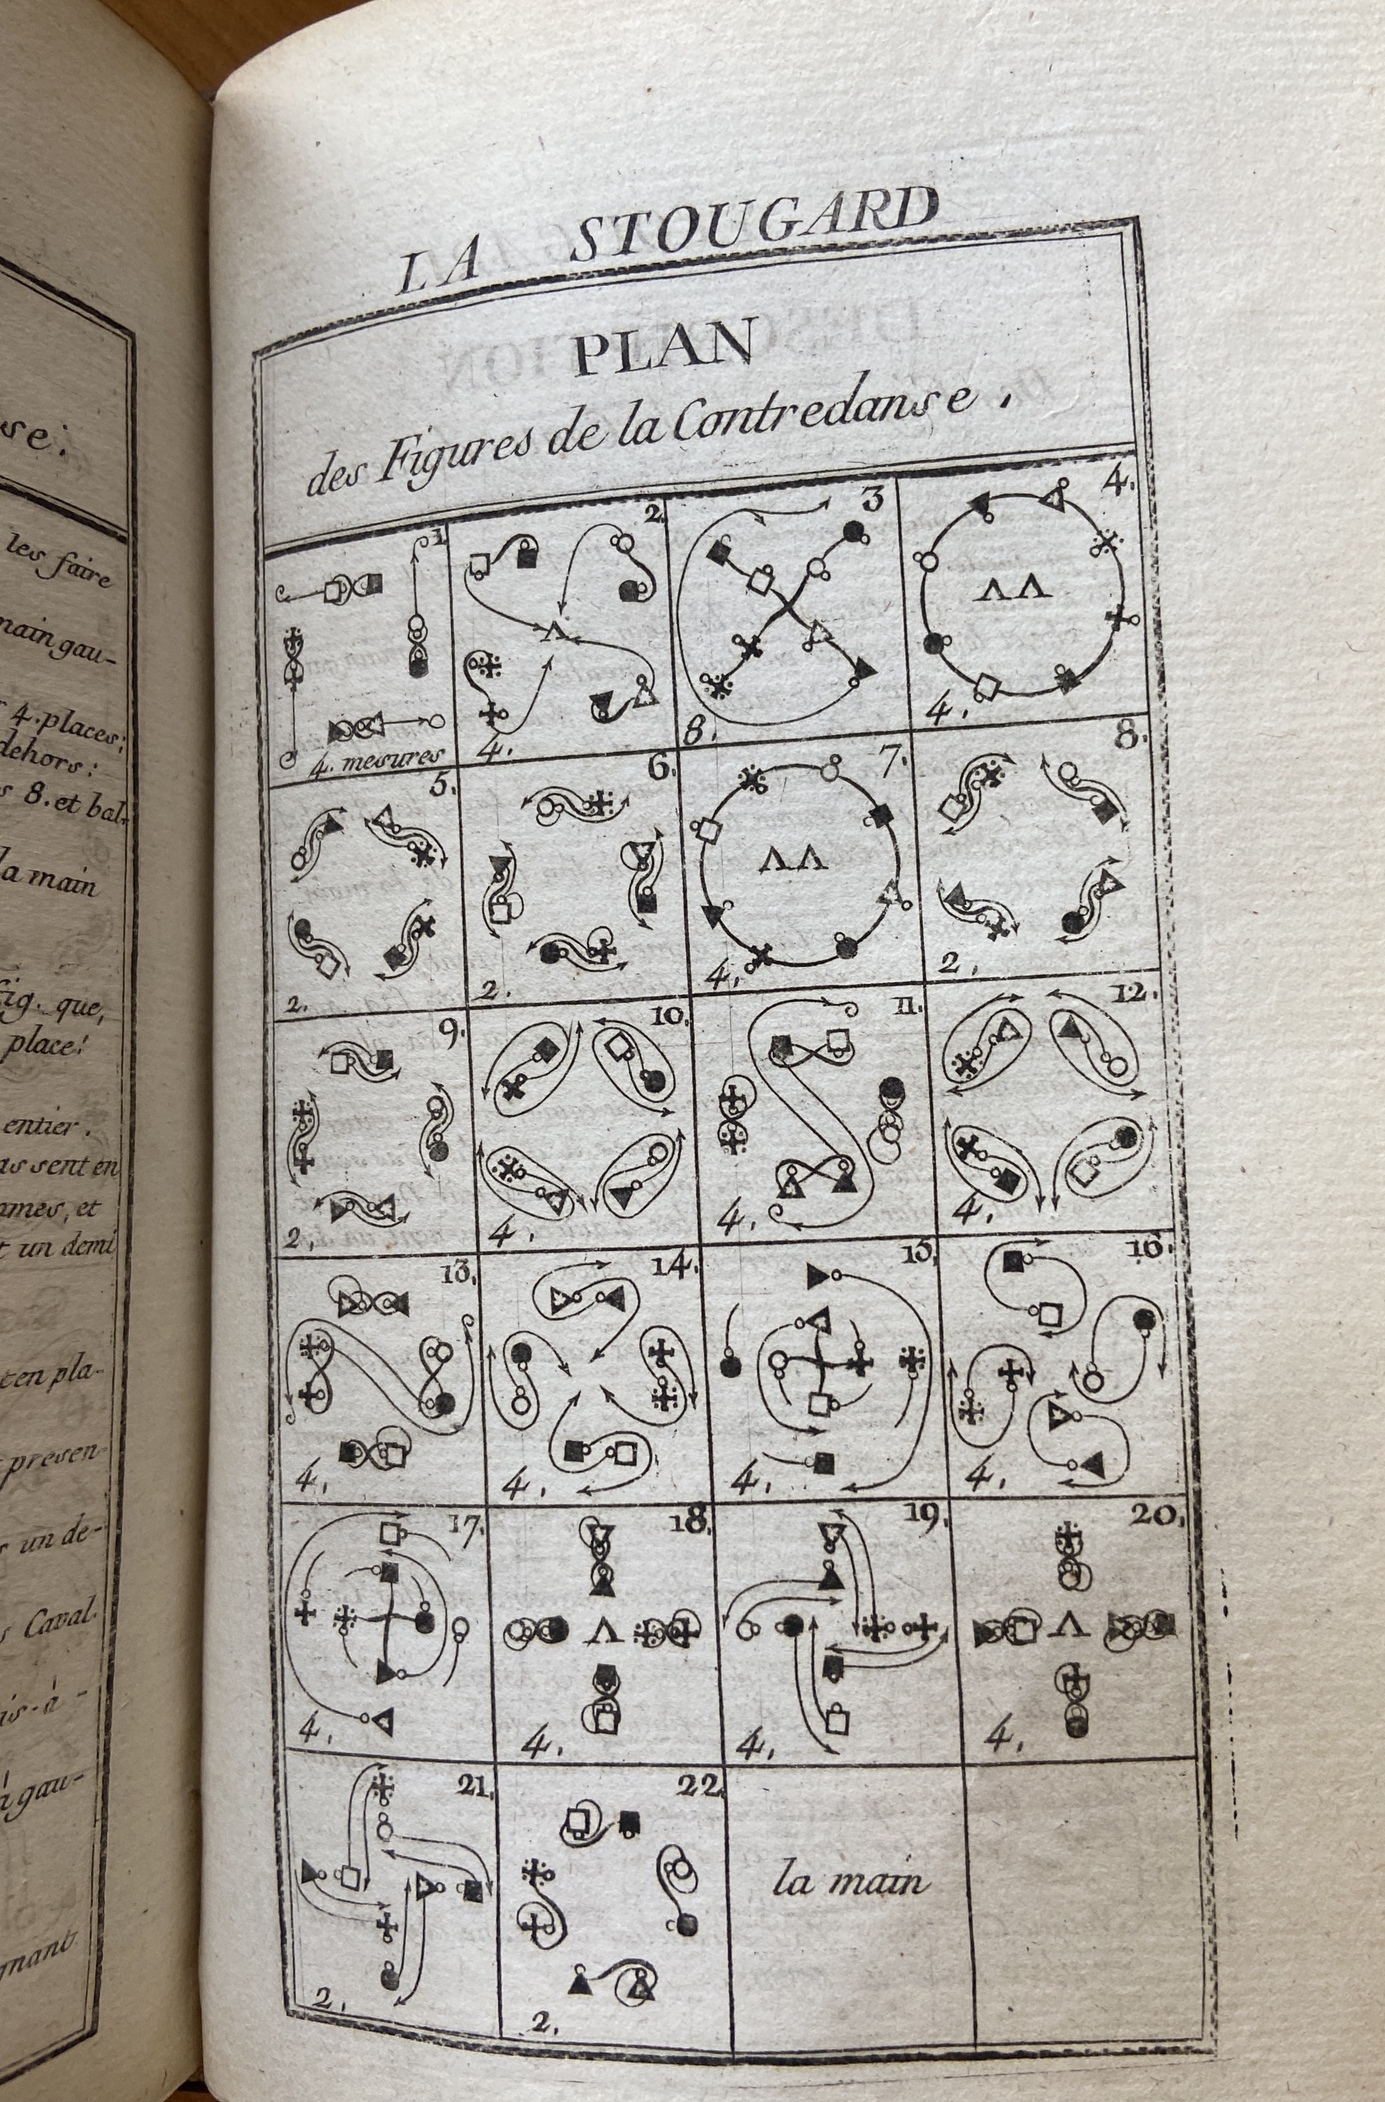 se.
les faire
main gau-
4. places;
dehors:
s 8. et bal-
la main
fig. que,
place!
entier.
as sent en
ames, et
t un demi
t en pla-
presen-
un de-
s Caval.
is-à-
à gau-
gnant
LA STOUGARD
PLAN
des Figures de la Contredanse.
1
4. mesures
2.
4.
3
8.
4.
4.
5.
2.
6.
2.
7.
4.
8.
2.
9.
2.
10.
4.
11.
4.
12.
4.
13.
4.
14.
4.
15.
4.
16.
4.
17.
4.
18.
4.
19.
4.
20.
4.
21.
2.
22.
2.
la main